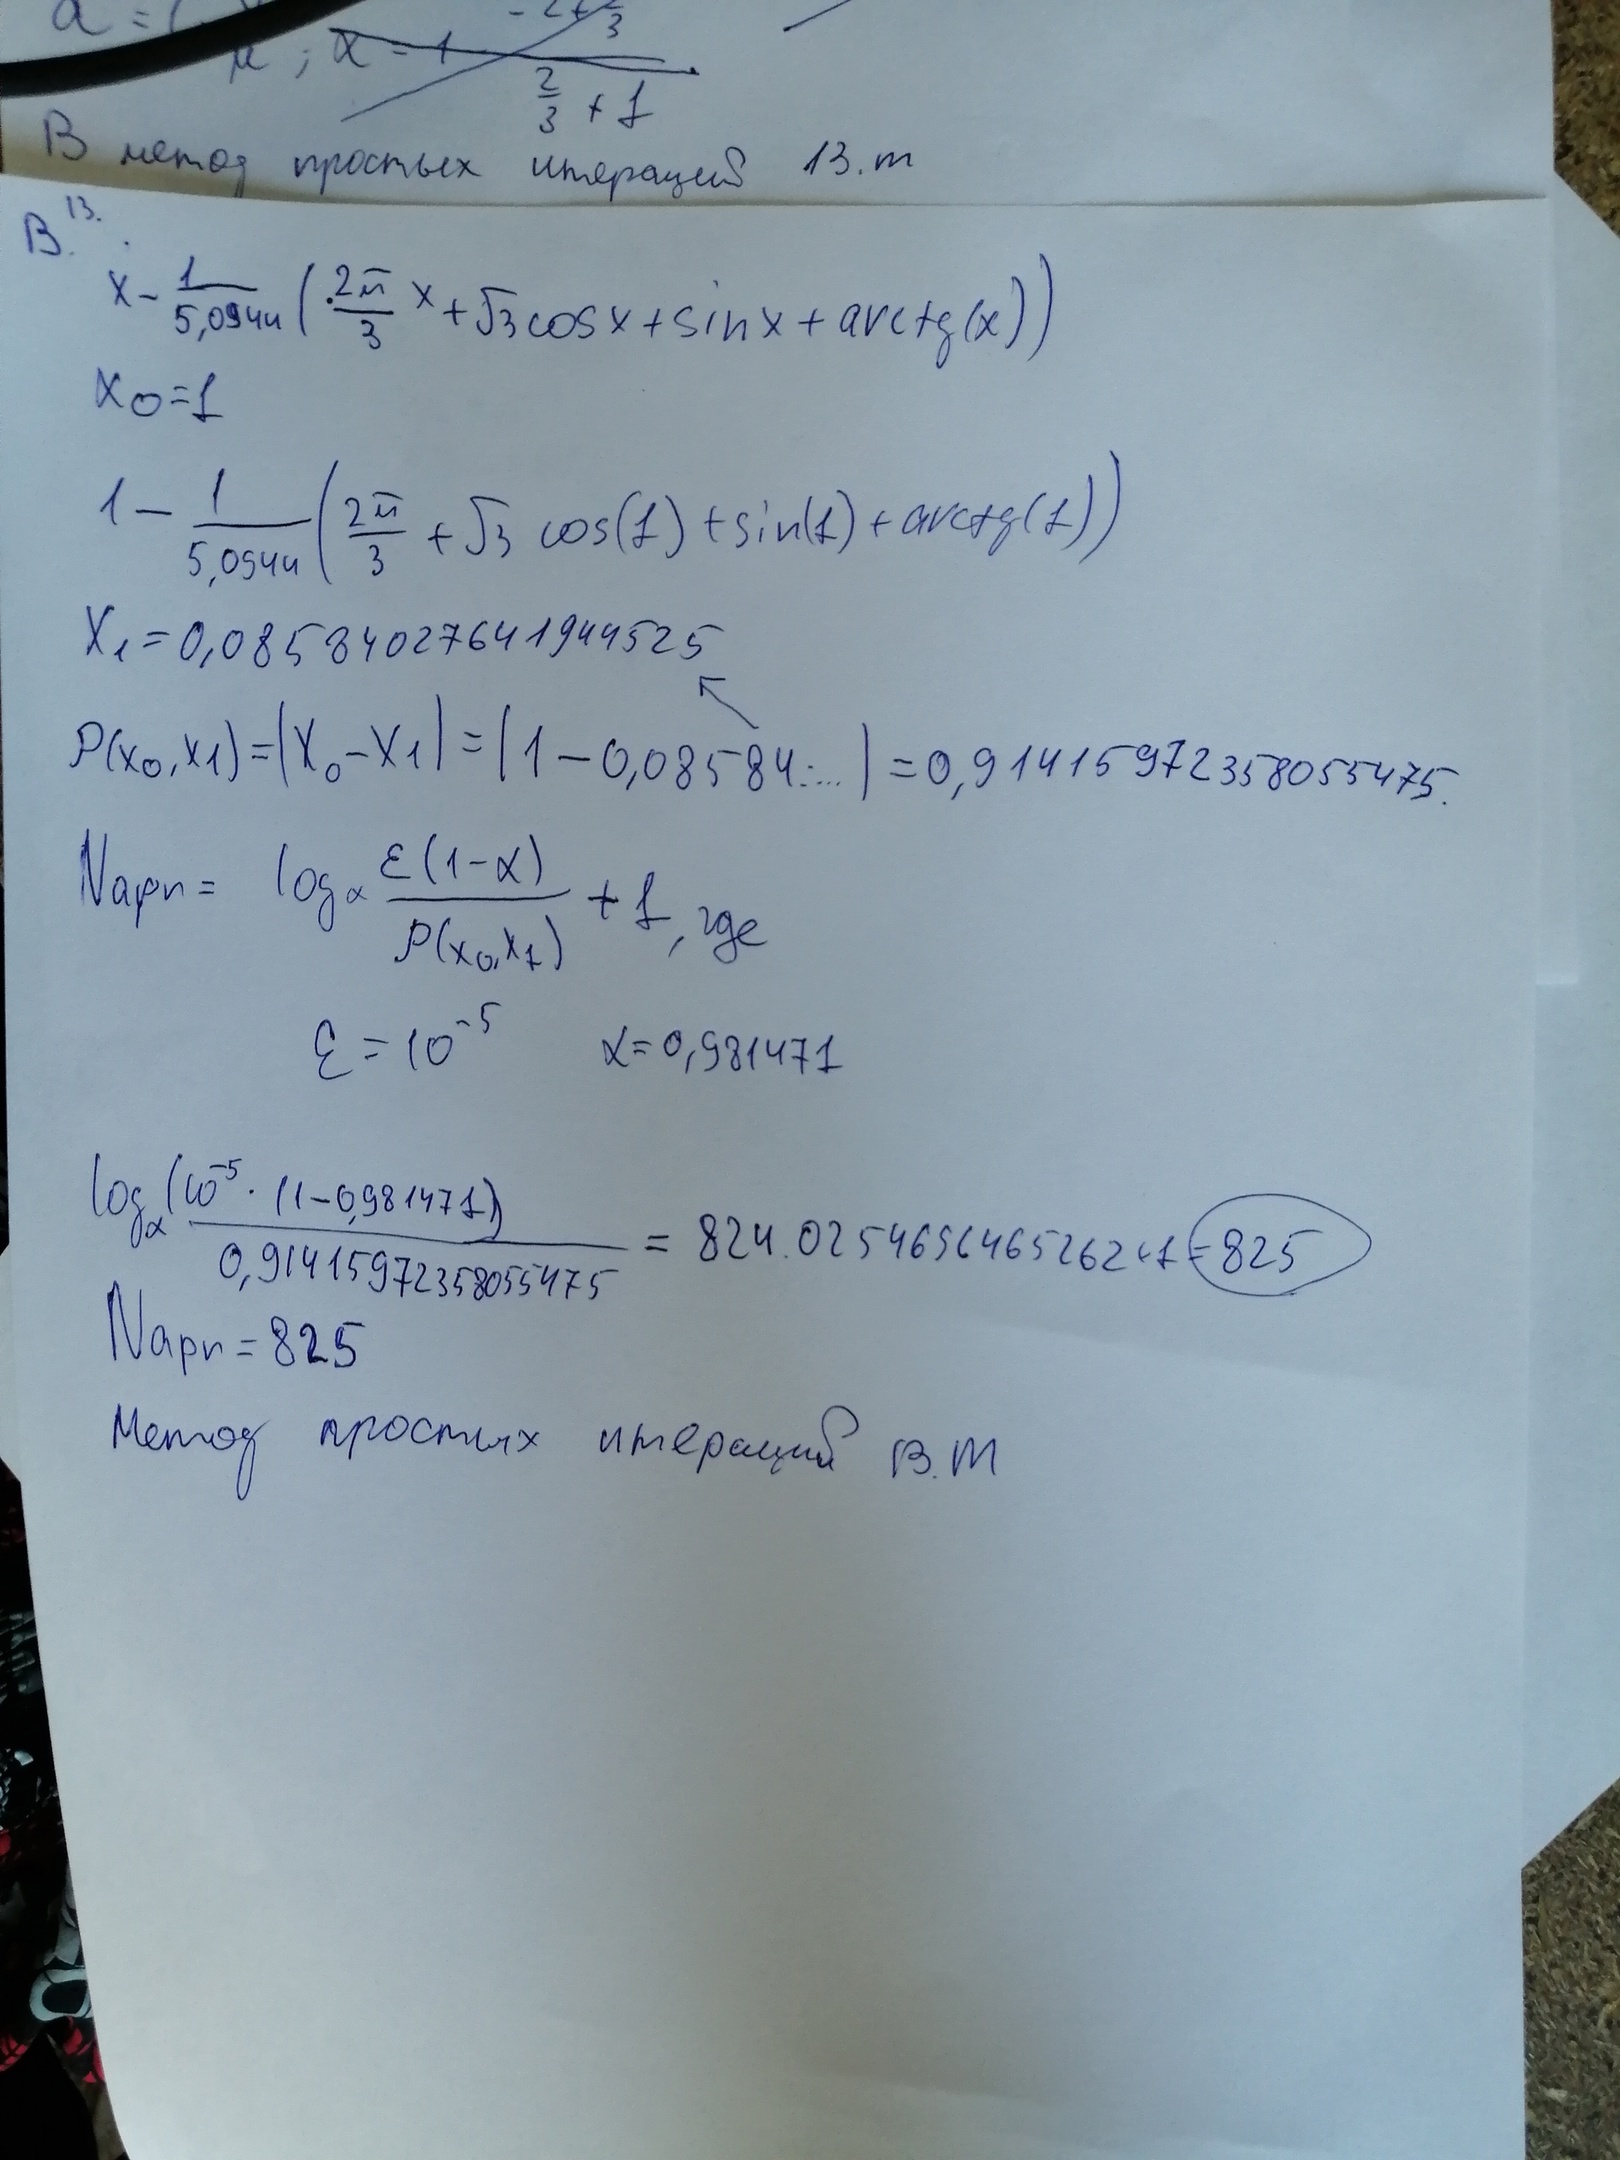 ; α = 1 - 2 + 2/3
2/3 + 1
В метод простых итераций 13.m
В. 13.
x - 1/5,0944 (2π/3 x + √3 cosx + sinx + arctg(x))
x0 = 1
1 - 1/5,0944 (2π/3 + √3 cos(1) + sin(1) + arctg(1))
X1 = 0,08584027641944525
ρ(x0,x1) = |X0 - X1| = |1 - 0,08584....| = 0,91415972358055475.
Napr = logα ε(1-α)/ρ(x0,x1) + 1, где
ε = 10^-5 α = 0,981471
logα (10^-5 · (1-0,981471))/0,91415972358055475 = 824.0254656465262+1 = 825
Napr = 825
Метод простых итераций В.М